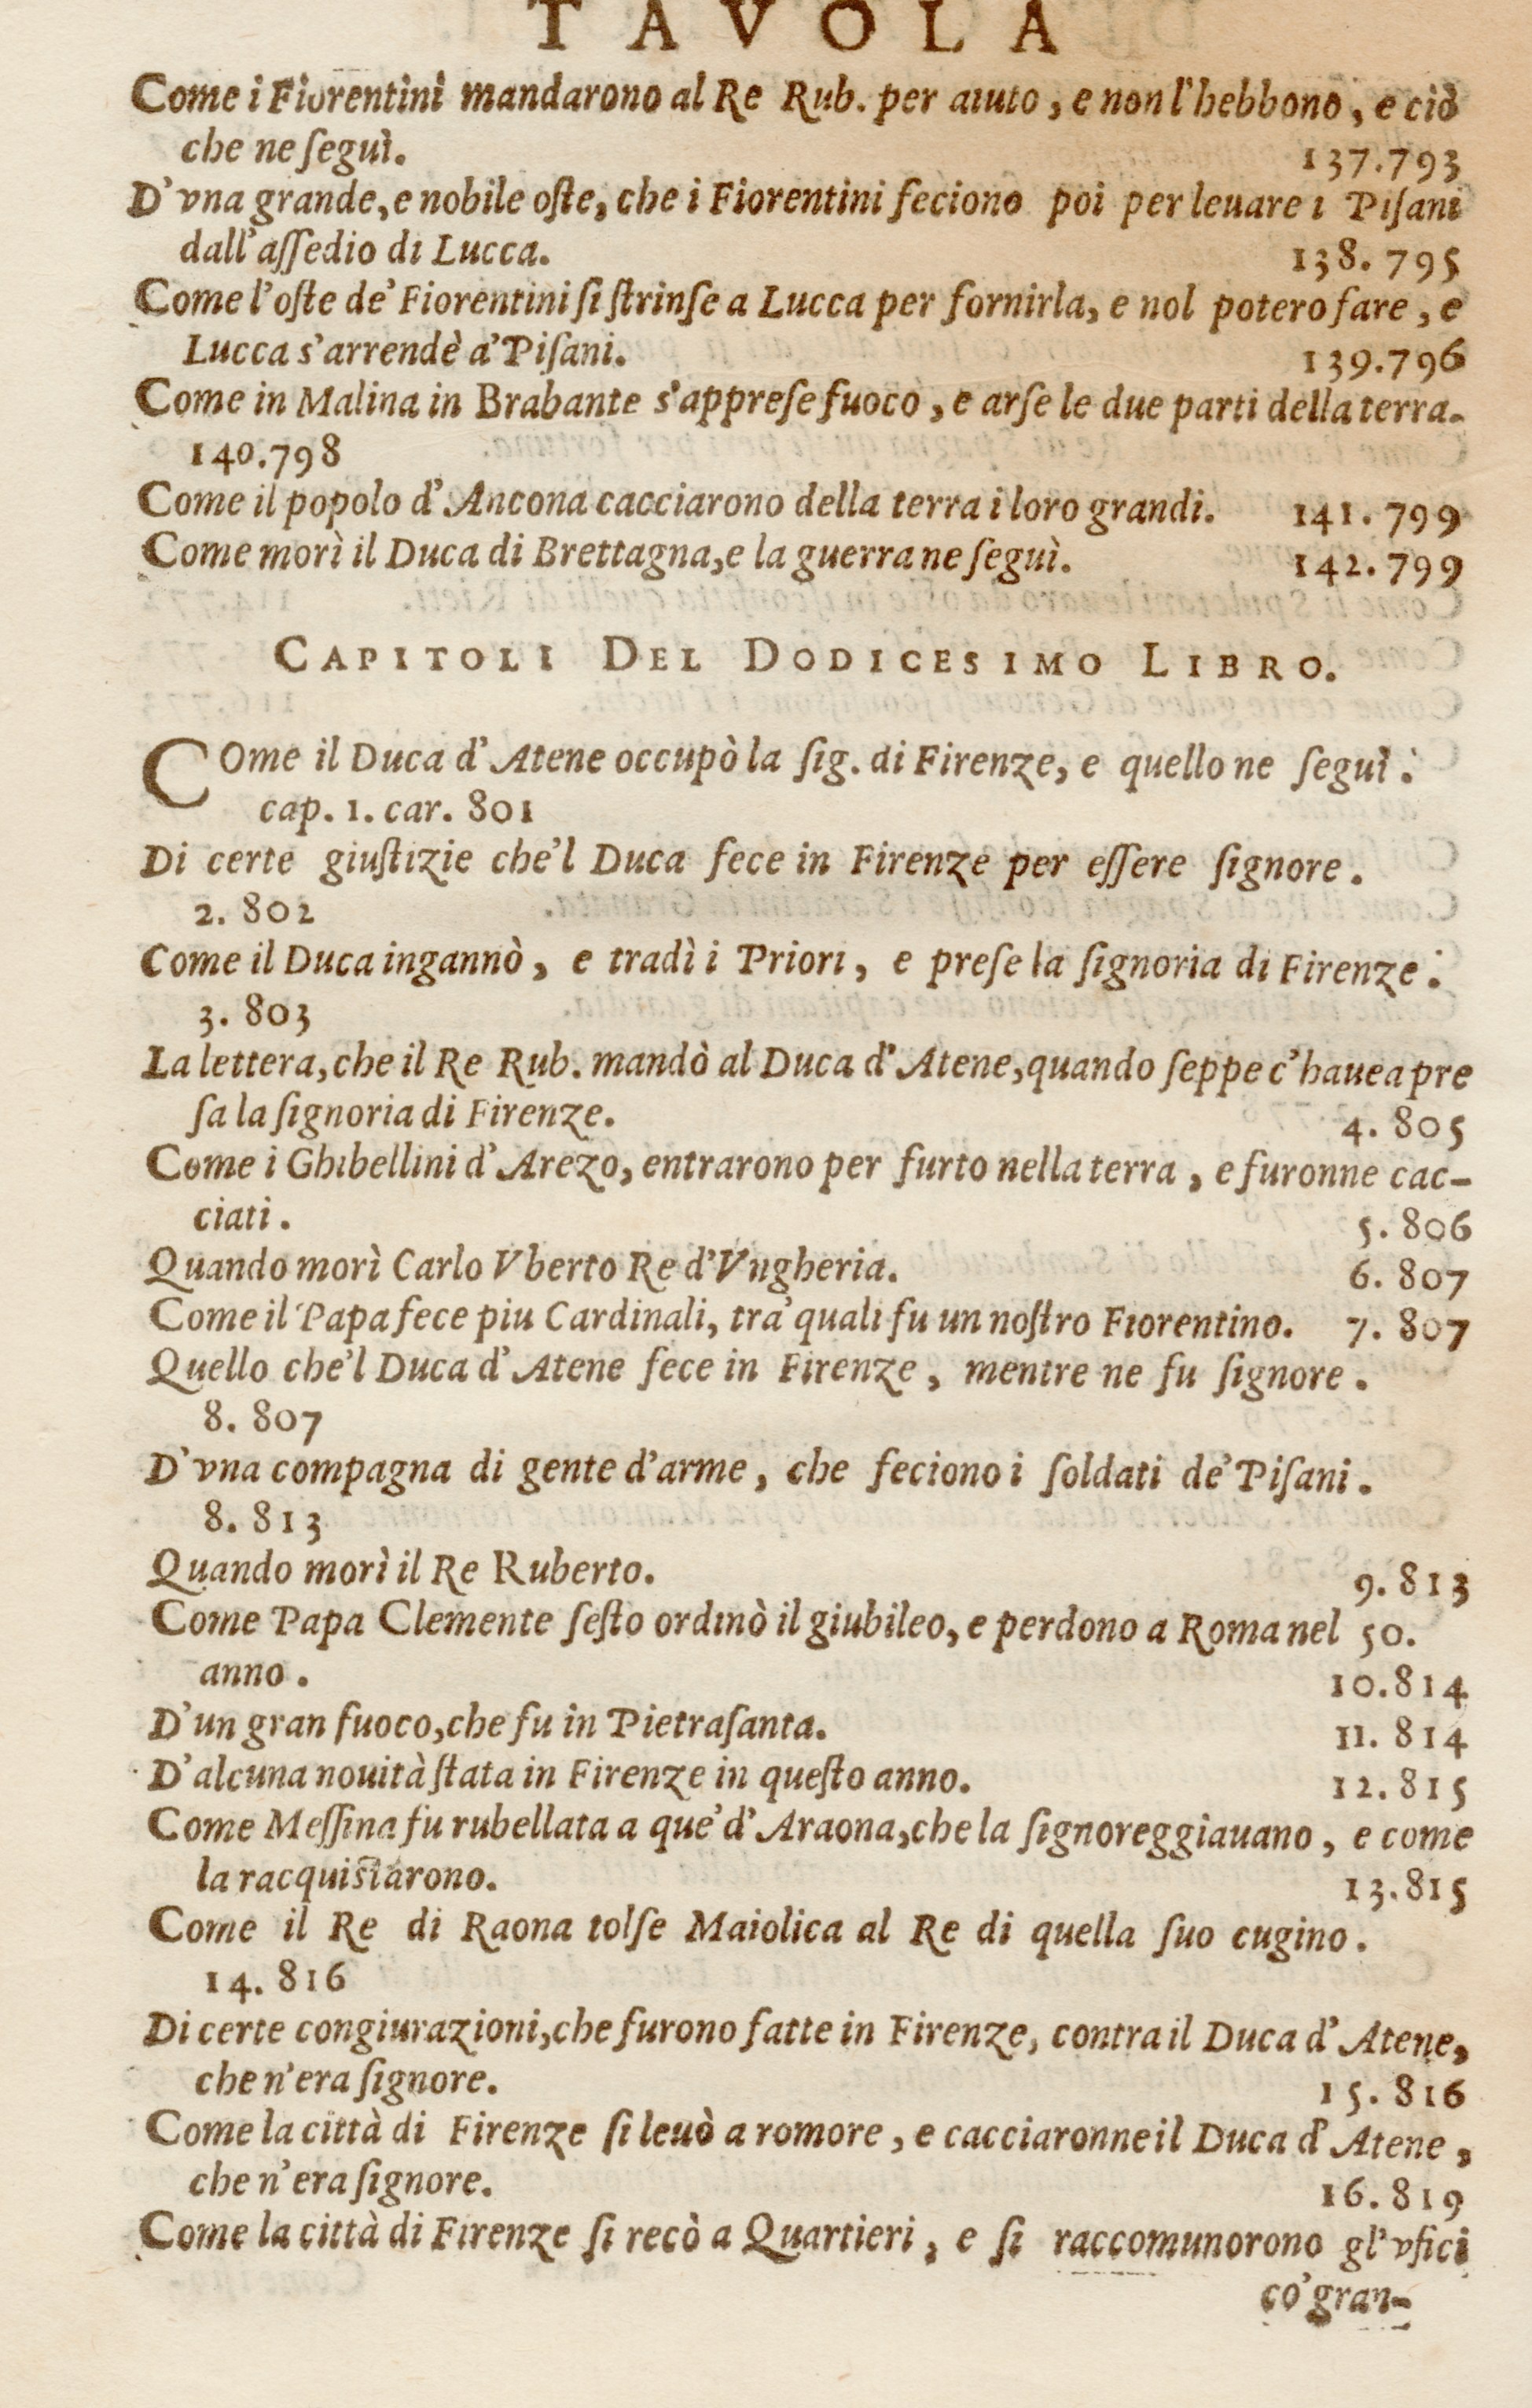 TAVOLA
Come i Fiorentini mandarono al Re Rub. per aiuto, e non l'hebbono, e ciò
che ne ſeguì. 137.793
D'vna grande, e nobile oſte, che i Fiorentini feciono poi per leuare i Piſani
dall'aſſedio di Lucca. 138. 795
Come l'oſte de' Fiorentini ſi ſtrinſe a Lucca per fornirla, e nol potero fare, e
Lucca s'arrendè a' Piſani. 139.796
Come in Malina in Brabante s'appreſe fuoco, e arſe le due parti della terra.
140.798
Come il popolo d'Ancona cacciarono della terra i loro grandi. 141. 799
Come morì il Duca di Brettagna, e la guerra ne ſeguì. 142. 799
CAPITOLI DEL DODICESIMO LIBRO.
COme il Duca d'Atene occupò la ſig. di Firenze, e quello ne ſeguì.
cap. 1. car. 801
Di certe giuſtizie che'l Duca fece in Firenze per eſſere ſignore.
2. 802
Come il Duca ingannò, e tradì i Priori, e preſe la ſignoria di Firenze.
3. 803
La lettera, che il Re Rub. mandò al Duca d'Atene, quando ſeppe c'hauea pre
ſa la ſignoria di Firenze. 4. 805
Come i Ghibellini d'Arezo, entrarono per furto nella terra, e furonne cac-
ciati. 5. 806
Quando morì Carlo Vberto Re d'Vngheria. 6. 807
Come il Papa fece piu Cardinali, tra' quali fu un noſtro Fiorentino. 7. 807
Quello che'l Duca d'Atene fece in Firenze, mentre ne fu ſignore.
8. 807
D'vna compagna di gente d'arme, che feciono i ſoldati de' Piſani.
8. 813
Quando morì il Re Ruberto. 9. 813
Come Papa Clemente ſeſto ordinò il giubileo, e perdono a Roma nel 50.
anno. 10.814
D'un gran fuoco, che fu in Pietraſanta. 11. 814
D'alcuna nouità ſtata in Firenze in queſto anno. 12.815
Come Meſſina fu rubellata a que' d'Araona, che la ſignoreggiauano, e come
la racquiſtarono. 13.815
Come il Re di Raona tolſe Maiolica al Re di quella ſuo cugino.
14. 816
Di certe congiurazioni, che furono fatte in Firenze, contra il Duca d'Atene,
che n'era ſignore. 15. 816
Come la città di Firenze ſi leuò a romore, e cacciaronne il Duca d'Atene,
che n'era ſignore. 16. 819
Come la città di Firenze ſi recò a Quartieri, e ſi raccomunorono gl'vfici
co' gran-